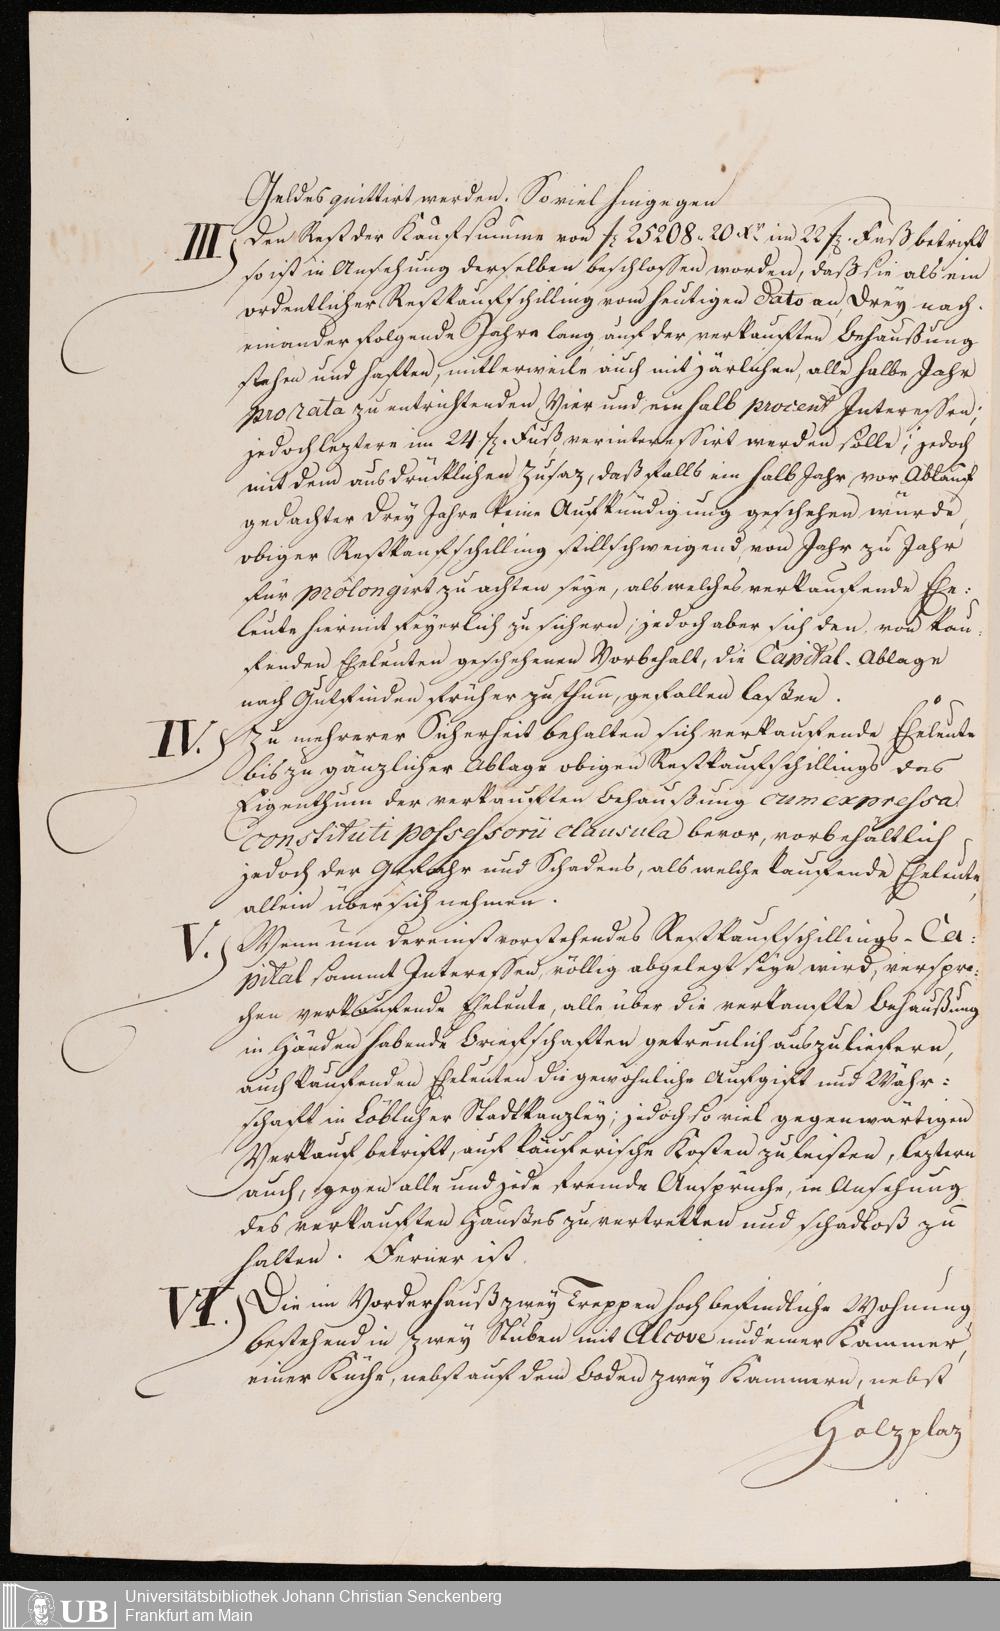 Geldes quittirt werden. Soviel hingegen
III. Den Rest der Kaufsumme von f 25208. 20 Xr. im 22 f. Fuß betrift
so ist in Ansehung derselben beschlossen worden, daß sie als ein
ordentlicher Restkaufschilling vom heutigen Dato an, Drey nach-
einander folgende Jahre lang, auf der verkauften Behaußung
stehen und haften, mittlerweile auch mit järlichen, alle halbe Jahr
pro rata zu entrichtenden Vier und ein halb procent Interessen;
jedoch leztere im 24. f. Fuß, verinteressirt werden solle; jedoch
mit dem ausdrücklichen Zusaz, daß falls ein halb Jahr vor Ablauf
gedachter Drey Jahre keine Aufkündigung geschehen würde,
obiger Restkaufschilling stillschweigend, von Jahr zu Jahr
für prolongirt zu achten seye, als welches verkaufende Ehe:
leute hiermit feyerlich zusichern; jedoch aber sich den von kau:
fenden Eheleuten geschehenen Vorbehalt, die Capital-Ablage
nach Gutfinden früher zu thun, gefallen laßen.
IV. Zu mehrerer Sicherheit behalten sich verkaufende Eheleute
bis zu gänzlicher Ablage obigen Restkaufschillings das
Eigenthum der verkauften Behaußung cum expressa
constituti possessorii clausula bevor, vorbehältlich
jedoch der Gefahr und Schadens, als welche kaufende Eheleute,
allein über sich nehmen.
V. Wenn nun dereinst vorstehendes Restkaufschillings-Ca:
pital sammt Interessen, völlig abgelegt seyn wird, verspre:
chen verkaufende Eheleute, alle über die verkaufte Behaußung
in Händen habende Briefschaften getreulich auszuliefern,
auch kaufenden Eheleuten die gewöhnliche Aufgift und Währ:
schaft in Löblicher Stadtkanzley; jedoch so viel gegenwärtigen
Verkauf betrift, auf käuferische Kosten zu leisten, leztern
auch, gegen alle und jede fremde Ansprüche, in Ansehung
des verkauften Haußes zu vertretten und schadloß zu
halten. Ferner ist
VI. Die im Vorderhauß zwey Treppen hoch befindliche Wohnung,
bestehend in zwey Stuben mit Alcove und einer Kammer,
einer Küche, nebst auf dem Boden zwey Kammern, nebst
Holzplaz
UB
Universitätsbibliothek Johann Christian Senckenberg
Frankfurt am Main